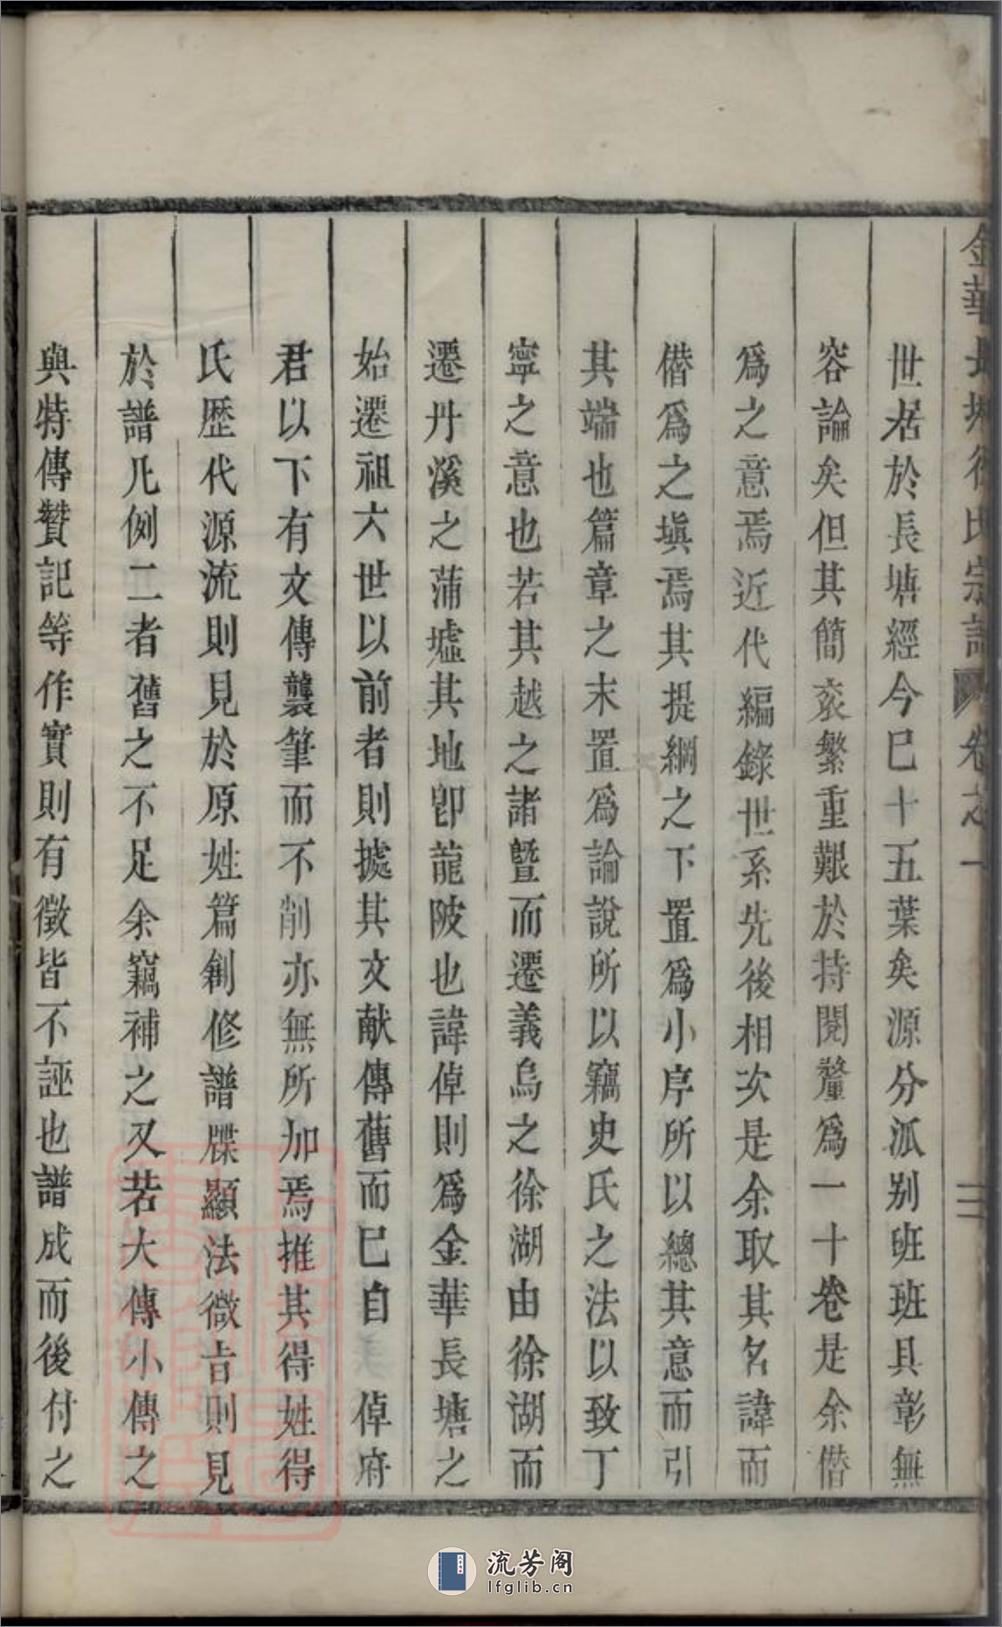 金華長塘徐氏宗譜 卷之一 三
世居於長塘經今巳十五葉矣源分派别班班具彰無
容論矣但其簡袠繁重艱於持閱釐爲一十卷是余僭
爲之意焉近代編錄世系先後相次是余取其名諱而
僭爲之塡焉其提綱之下置爲小序所以總其意而引
其端也篇章之末置爲論說所以竊史氏之法以致丁
寧之意也若其越之諸曁而遷義烏之徐湖由徐湖而
遷丹溪之蒲墟其地卽龍陂也諱倬則爲金華長塘之
始遷祖六世以前者則據其文献傳舊而巳自 倬府
君以下有文傳襲筆而不削亦無所加焉推其得姓得
氏歷代源流則見於原姓篇創修譜牒顯法微旨則見
於譜凡例二者舊之不足余竊補之又若大傳小傳之
與特傳贊記等作實則有徵皆不誣也譜成而後付之
流芳阁
lfglib.cn